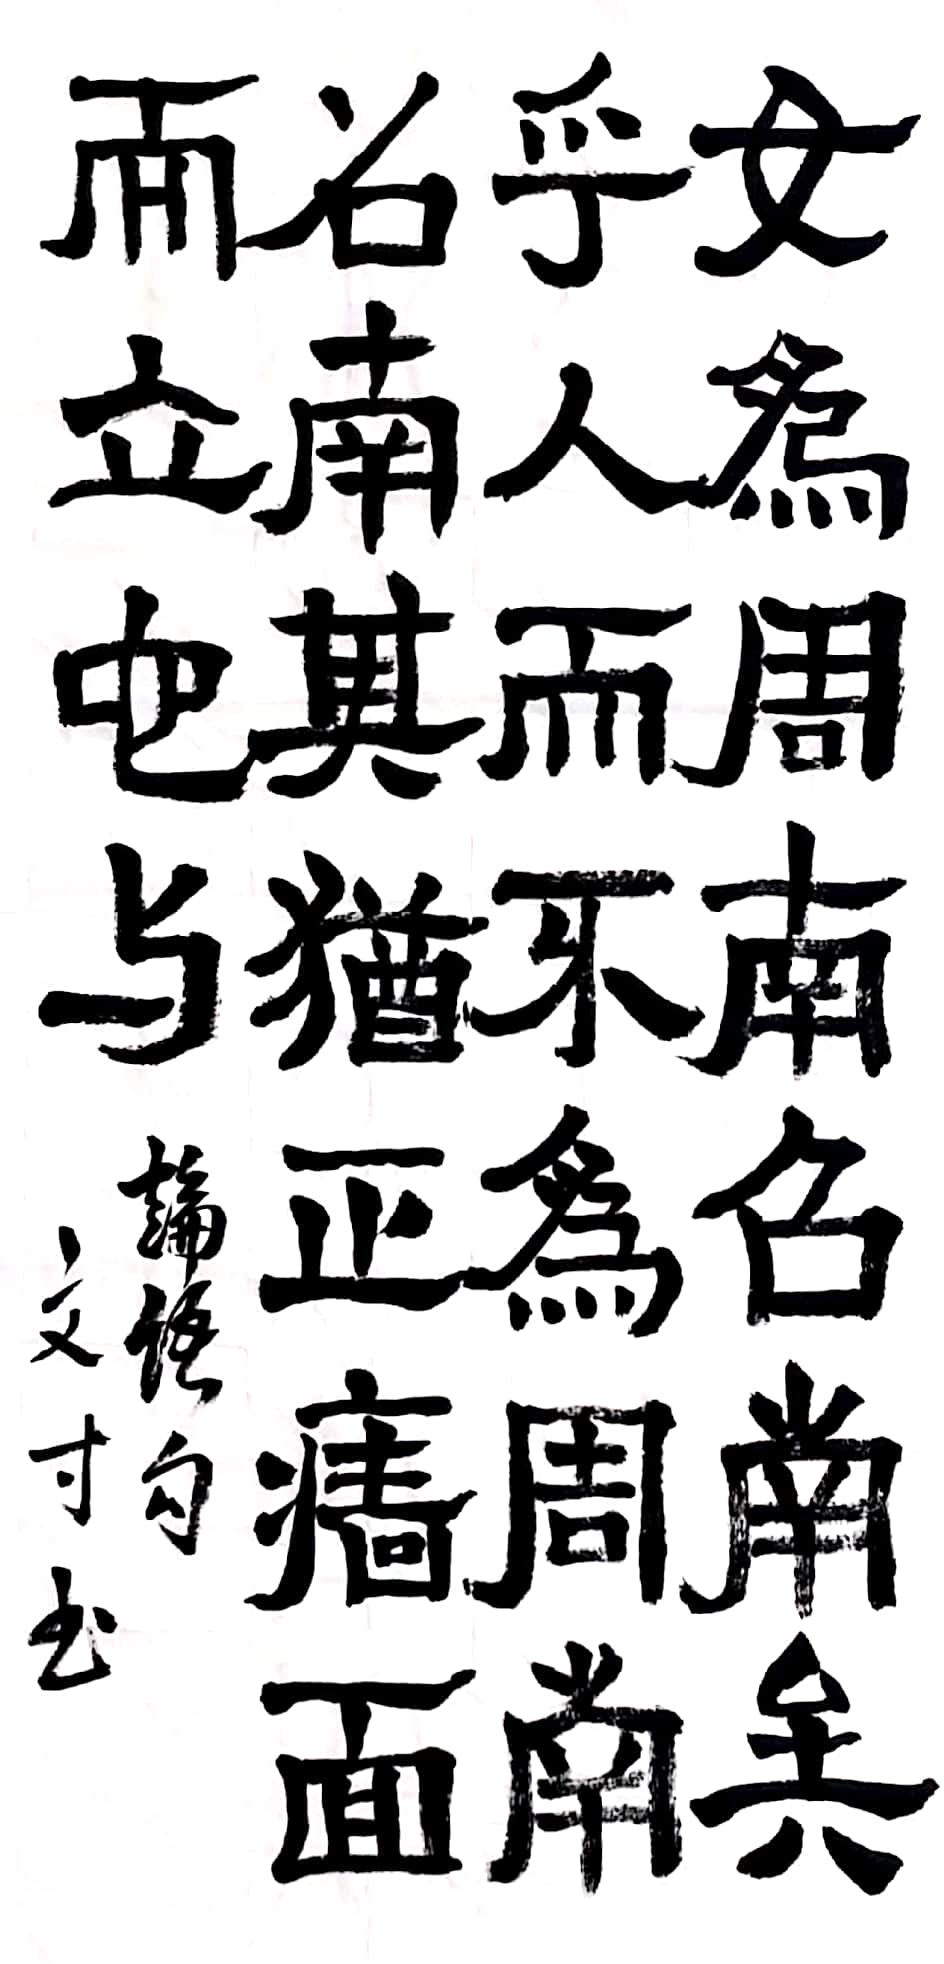 女為周南召南矣
乎人而不為周南
召南其猶正牆面
而立也与
論語句
文寸书